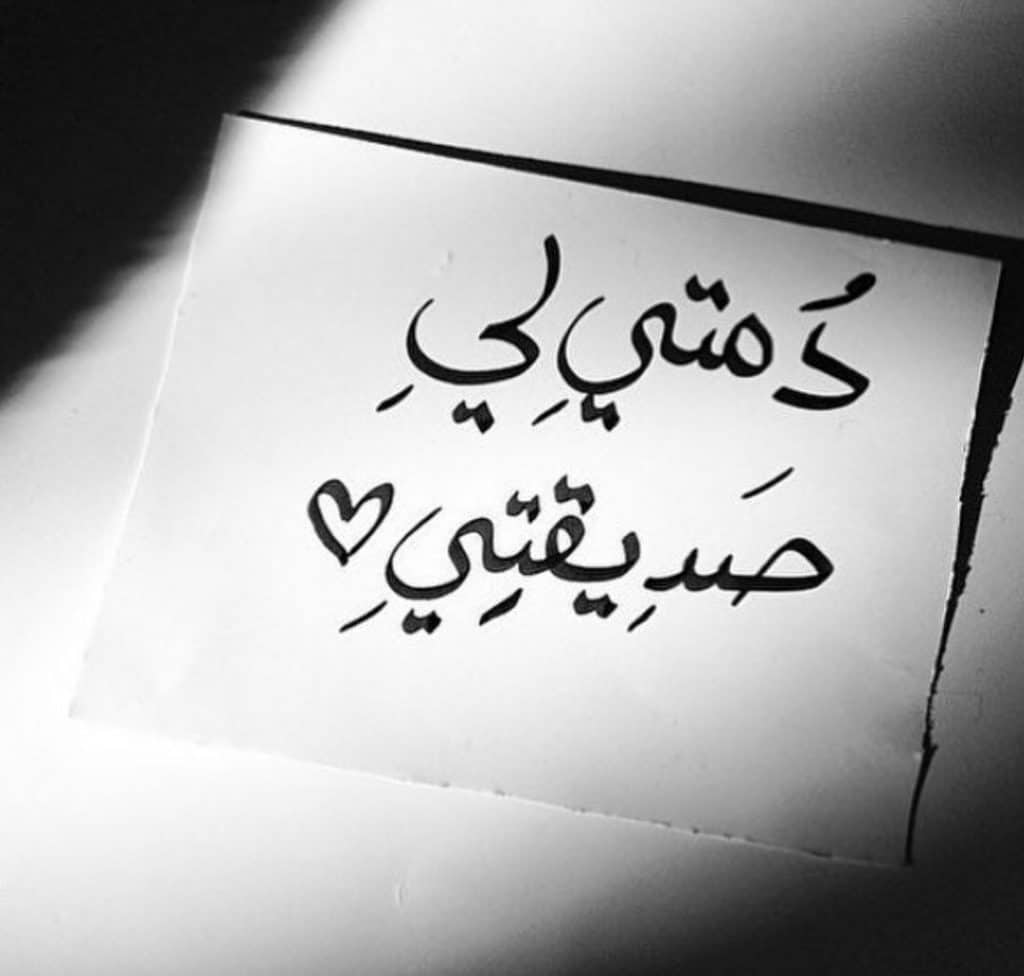 دُمتيِ ليِ
صَدِيقتِيِ♡